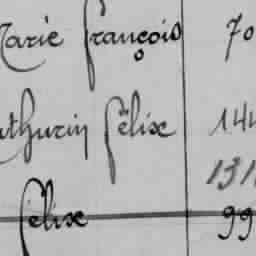 Marie François 70
athurin Félix 144
131
Félix 99